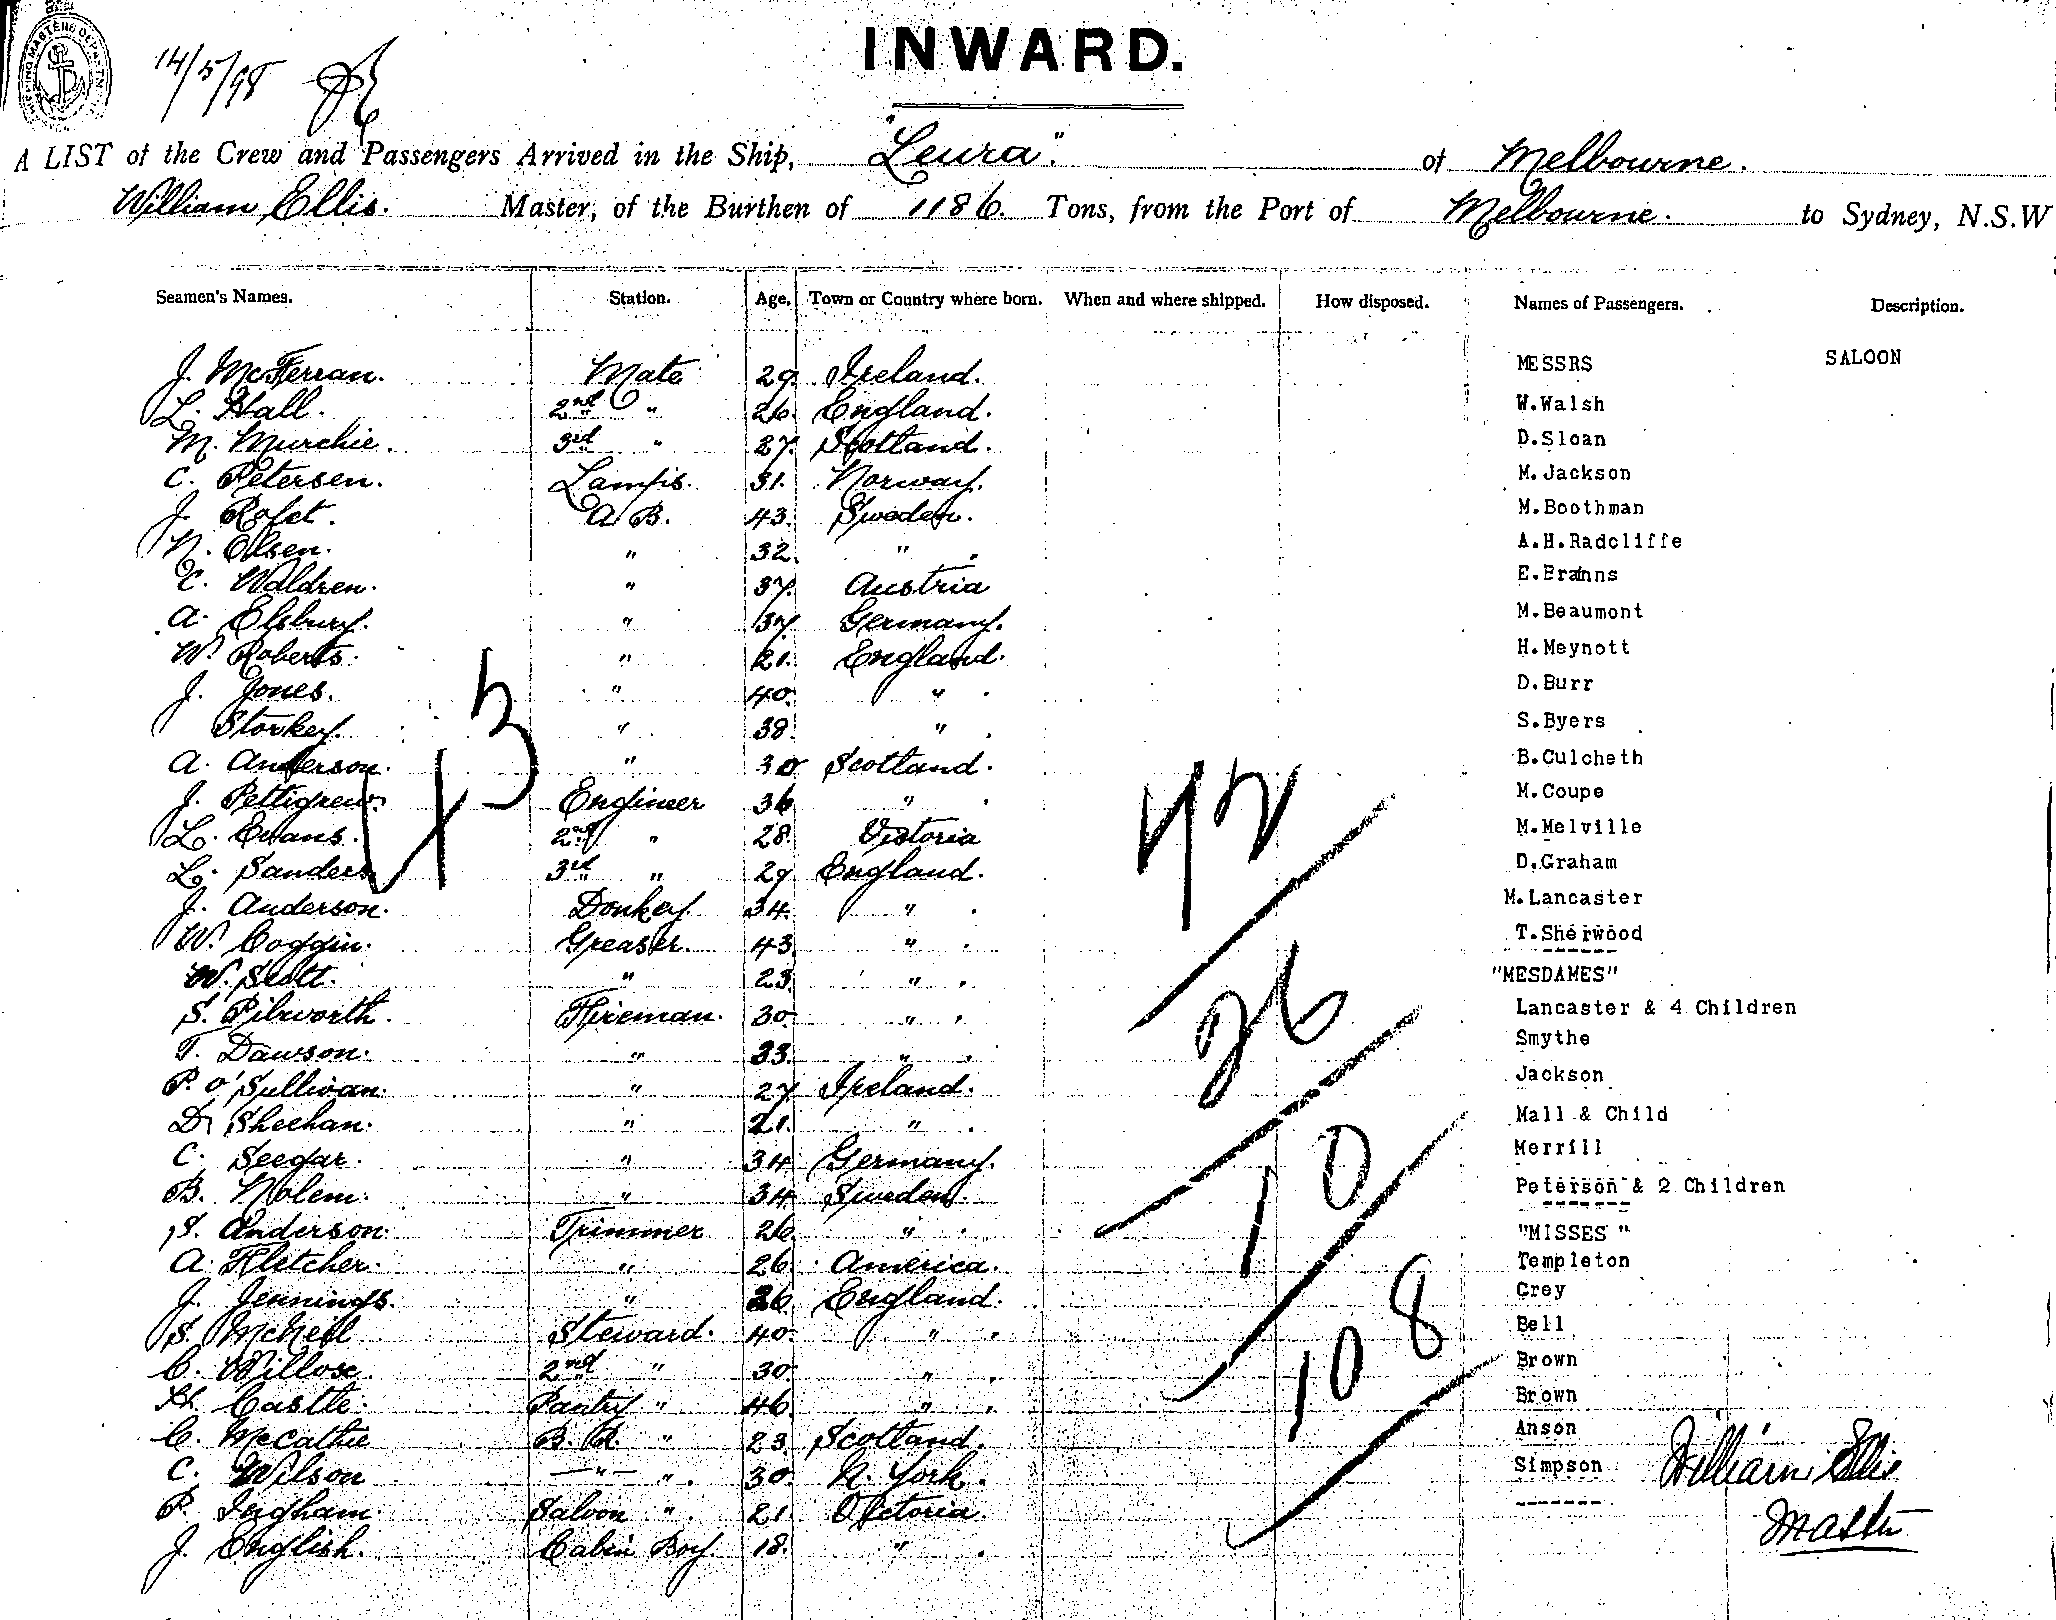 14/5/98
INWARD.
A LIST of the Crew and Passengers Arrived in the Ship, "Leura". of Melbourne.
William Ellis. Master, of the Burthen of 1186. Tons, from the Port of Melbourne. to Sydney, N.S.W
Seamen's Names. Station. Age. Town or Country where born. When and where shipped. How disposed. Names of Passengers. Description.
J. McFerran. Mate 29. Ireland. MESSRS SALOON
L. Hall. 2nd " 26. England. W.Walsh
M. Murchie. 3rd " 27. Scotland. D.Sloan
C. Petersen. Lamps. 31. Norway. M.Jackson
J. A.B. 43. Sweden. M.Boothman
N. Olsen. " 32. " . A.H.Radcliffe
C. Waldren. " 37. Austria E.Branns
A. Elsbury. " 37 Germany. M.Beaumont
W. Roberts. " 21. England. H.Meynott
J. Jones. " 40. " . D.Burr
Storkey. " 38. " . S.Byers
A. Anderson. " 30 Scotland. B.Culcheth
J. Pettigrew. Engineer 36 " . M.Coupe
L. Evans. 2nd " 28. Victoria M.Melville
L. Sanders 3rd " 29 England. D.Graham
J. Anderson. Donkey. 34. " . M.Lancaster
W. Coggin. Greaser. 43. " . T.Sherwood
W. Scott. " 23. " . "MESDAMES"
S. Pibworth. Fireman. 30. " . Lancaster & 4 Children
T. Dawson. " 33. " . Smythe
P. O'Sullivan. " 27 Ireland. Jackson
D. Sheehan. " 21. " . Mall & Child
C. Seegar. " 34 Germany. Merrill
B. Nolem. " 34 Sweden. Peterson & 2 Children
S. Anderson. Trimmer 26. " . "MISSES "
A. Fletcher. " 26. America. Templeton
J. Jennings. " 26. England. Grey
S. McNeil Steward. 40. " . Bell
C. Willox. 2nd " 30. " . Brown
H. Castle. Pantry " 46. " . Brown
C. McCathie B.R. " 23. Scotland. Anson
C. Wilson —"— ". 30. N. York. Simpson
P. Ingham. Saloon ". 21. Victoria.
J. English. Cabin Boy. 18. " .
43
42
26
10
108
William Ellis
Master